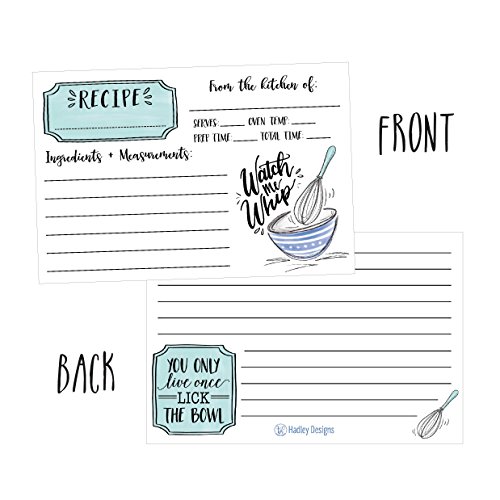 RECIPE
From the kitchen of:
SERVES: OVEN TEMP:
PREP TIME: TOTAL TIME:
Ingredients + Measurements:
Watch
me
Whip
FRONT
BACK
YOU ONLY
live once
LICK
THE BOWL
Hadley Designs